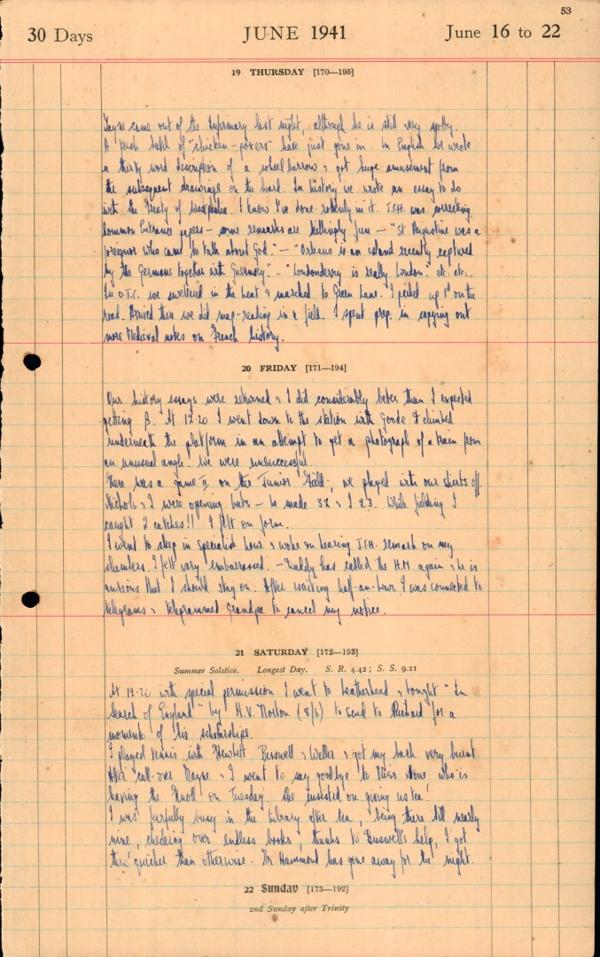 53
30 Days JUNE 1941 June 16 to 22
19 THURSDAY [170—195]
came out of the Infirmary last night, although he is still very spotty.
A fresh batch of "chicken-poxers" have just gone in. In English we wrote
a thirty word description of a wheelbarrow & got huge amusement from
the subsequent drawings on the board. In history we wrote an essay to do
with the Treaty of Westphalia. I know I've done rottenly in it. J.E.H. was correcting
Common Entrance papers — some remarks are killingly funny — "St Augustine was a
foreigner who came to talk about God." — "Orleans is an island recently captured
by the Germans together with Guernsey". — "Londonderry is really London" etc. etc.
In O.T.C. we sweltered in the heat & marched to Green Lane. I perked up 1st on the
road. Arrived there we did map-reading in a field. I spent prep. in copying out
more Medieval notes on French history.
20 FRIDAY [171—194]
Our history essays were returned & I did considerably better than I expected
getting β. At 12.20 I went down to the station with Goode & climbed
underneath the platform in an attempt to get a photograph of a train from
an unusual angle. We were unsuccessful.
There was a game on the Junior Field; we played with our shirts off.
Nichols & I were opening bats — he made 32 & I 23. While fielding I
caught 2 catches!! I felt on form.
I went to sleep in specialist hour & woke on hearing J.E.H. remark on my
slumbers. I felt very embarrassed. — Daddy has called the H.M. again & he is
anxious that I should stay on. After waiting half-an-hour I was connected to
telegrams & telegrammed Grandpa to cancel my notice.
21 SATURDAY [172—193]
Summer Solstice. Longest Day. S. R. 4.42; S. S. 9.21
At 12.20 with special permission I went to Leatherhead & bought "In
Search of England" by H.V. Morton (8/6) to send to Richard for a
momento of his scholarships.
I played tennis with Hewlett, Buswell & Weller & got my back very burnt.
After call-over Mayne & I went to say goodbye to Miss who is
leaving the Knoll on Tuesday. She insisted on giving us tea!
I was fearfully busy in the Library after tea, being there till nearly
nine, checking over endless books, thanks to Buswell's help, I got
thro' quicker than otherwise. Mr Hammond has gone away for the night.
22 Sunday [173—192]
2nd Sunday after Trinity